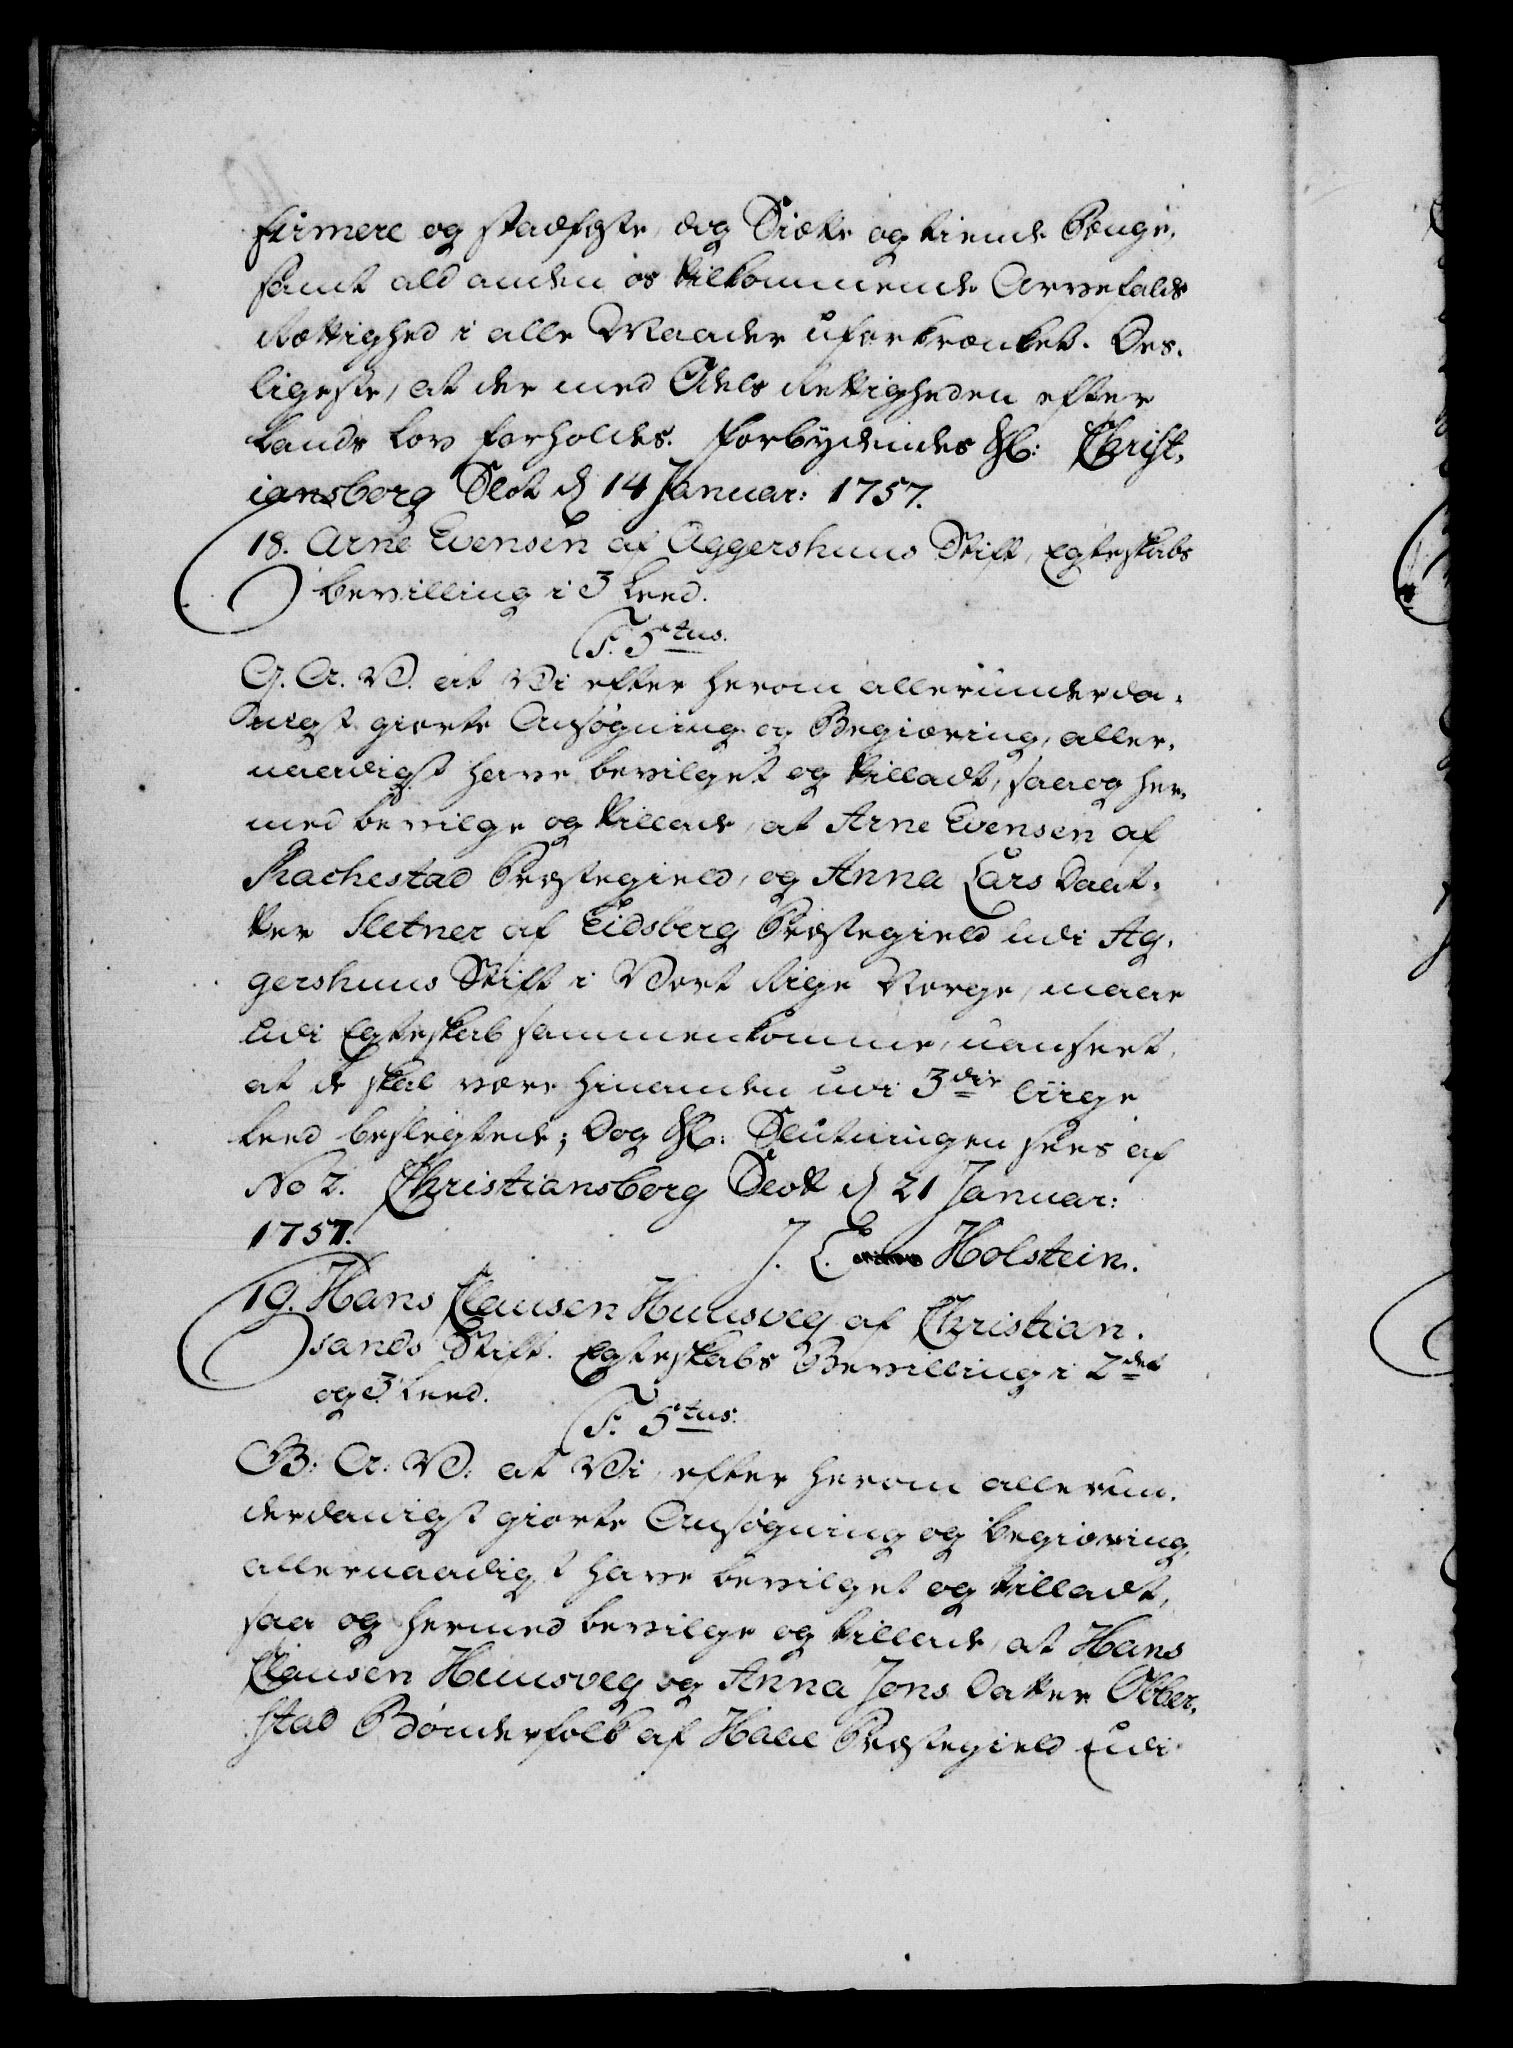 firmere og stadfæste, dog Siette og tiende Penge,
samt ald anden os tilkommende Arvefalds
Rettighed i alle Maader uforkrænket. Des-
ligeste, at der med Odels Rettigheden efter
Lands Lov forholdes. Forbydendes &c: Christ-
iansborg Slot d 14 Januar: 1757.
18. Arne Evensen af Aggershuus Stift, Egteskabs
bevilling i 3 Leed.
F. 5tus.
G. A. V. at Vi efter herom allerunderda-
nigst giorte Ansøgning og Begiæring, aller-
naadigst have bevilget og tilladt, saa og her-
med bevilge og tillade, at Arne Evensen af
Rachestad Præstegield, og Anna Lars Daat-
ter Sletner af Eidsberg Præstegield udi Ag-
gershuus Stift i Vort Rige Norge, maae
udi Egteskab sammenkomme, uanseet,
at de skal være hinanden udi 3die liige
Leed beslegtede; Dog &c: Slutningen sees af
No 2. Christiansborg Slot d 21 Januar:
1757.
J. L. Holstein.
19. Hans Clausen Huusveg af Christian-
sands Stift. Egteskabs Bevilling i 2det
og 3 Leed.
F. 5tus.
G: A: V: at Vi, efter herom allerun-
derdanigst giorte Ansøgning og begiæring,
allernaadigst have bevilget og tilladt,
saa og hermed bevilge og tillade, at Hans
Clausen Huusveg og Anna Jons Datter Obber-
stad Bønderfolk af Haae Præstegield udi